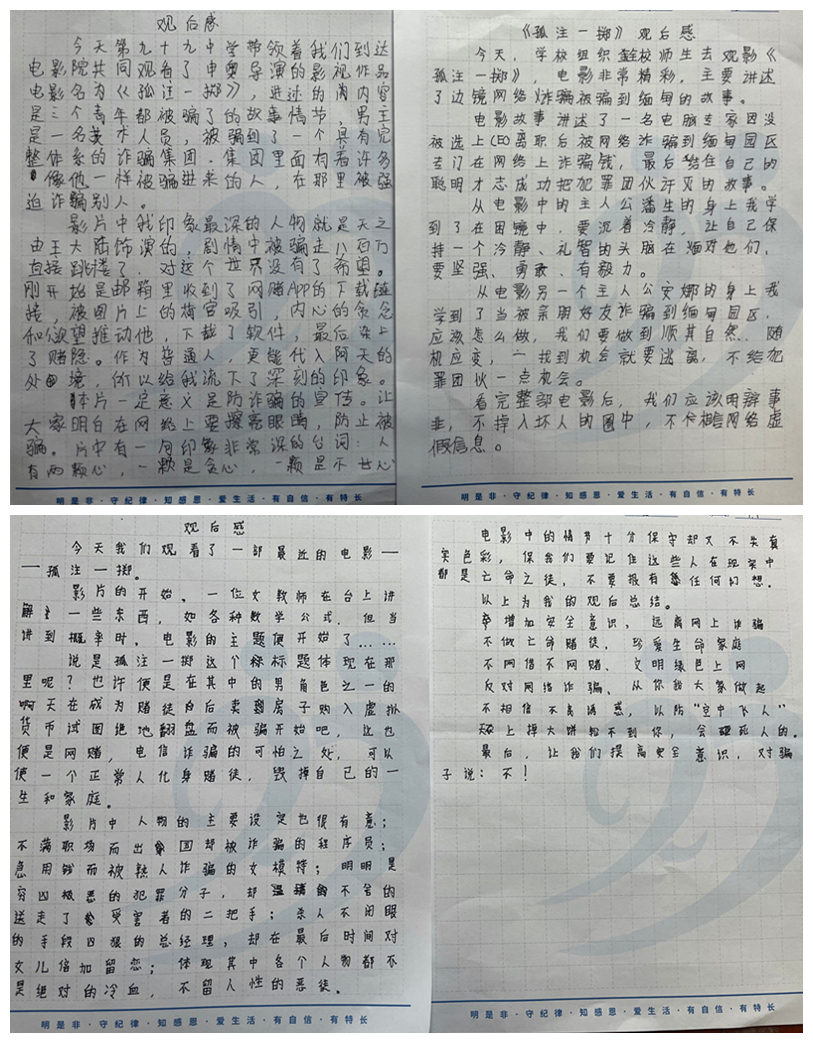 观后感
今天第九十九中学带领着我们到达
电影院共同观看了申奥导演的影视作品
电影名为《孤注一掷》,讲述的内容
是三个青年都被骗了的故事情节,男主
是一名技术人员,被骗到了一个具有完
整体系的诈骗集团.集团里面有着许多
像他一样被骗进来的人,在那里被强
迫诈骗别人。
影片中我印象最深的人物就是天之
由王大陆饰演的,剧情中被骗走八百万
直接跳楼了.对这个世界没有了希望。
刚开始是邮箱里收到了网赌APP的下载链
接,被图片上的荷官吸引,内心的贪念
和欲望推动他,下载了软件,最后染上
了赌隐。作为普通人,更能代入阿天的
处境,所以给我流下了深刻的印象。
本片一定意义是防诈骗的宣传。让
大家明白在网兆上要擦亮眼睛,防止被
骗。片中有一句印象非常深的台词:人
有两颗心,一颗是贪心,一颗是不甘心
明是非·守纪律·知感恩·爱生活·有自信·有特长
《孤注一掷》观后感
今天,学校组织全校师生去观影《
孤注一掷》,电影非常精彩,主要讲述
了边镜网络诈骗被骗到缅甸的故事。
电影故事讲述了一名电脑专家因没
被选上CEO离职后被网络诈骗到缅甸园区
去门在网络上诈骗钱,最后给住自己的
聪明才志成功把犯罪团伙歼灭的故事。
从电影中的主人公潘生的身上我学
到了在困镜中,要沉着冷静,让自己保
持一个冷静、礼智的头脑在面对他们,
要坚强、勇敢、有毅力。
从电影另一个主人公安娜的身上我
学到了当被亲朋好友诈骗到缅甸园区,
应该怎么做,我们要做到顺其自然,随
机应变,一找到机会就要逃离,不给犯
罪团伙一点机会。
看完整部电影后,我们应该明辨事
非,不掉入坏人的圈中,不相信网络虚
假信息。
明是非·守纪律·知感恩·爱生活·有自信·有特长
观后感
今天我们观看了一部最近的电影—
—孤注一掷。
影片的开始,一位女教师在台上讲
解一些东西,如各种数学公式,但当
讲到概率时,电影的主题便开始了……
说是孤注一掷这个标题体现在那
里呢?也许便是在其中的男角色之一的
啊天在成为赌徒后卖到房子购入虚拟
货币试图绝地翻盘而被骗开始吧,这也
便是网赌,电信诈骗的可怕之处,可以
使一个正常人化身赌徒,毁掉自己的一
生和家庭。
影片中人物的主要设定也很有意;
不满职场而出国却被诈骗的程序员;
急用钱而被熟人诈骗的女模特;明明是
穷凶极恶的犯罪分子,却不舍的
送走了受害者的二把手;杀人不闭眼
的手段凶狠的总经理,却在最后时间对
女儿倍加留恋;体现其中各个人物都不
是绝对的冷血,不留人性的恶徒。
明是非·守纪律·知感恩·爱生活·有自信·有特长
电影中的情节十分保守却又不失真
实色彩,保我们要记住这些人在现实中
都是亡命之徒,不要报有任何幻想.
以上为我的观后总结。
增加安全意识,远离网上诈骗
不做亡命赌徒,珍爱生命家庭
不网信不网赌、文明绿色上网
反对网络诈骗、从你我大家做起
不相信不良诱惑,以防“空中飞人”
天上掉大饼轮不到你,会砸死人的。
最后,让我们提高安全意识,对骗
子说:不!
明是非·守纪律·知感恩·爱生活·有自信·有特长